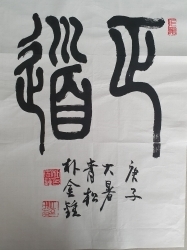 正道
庚子
大暑
青松
朴金